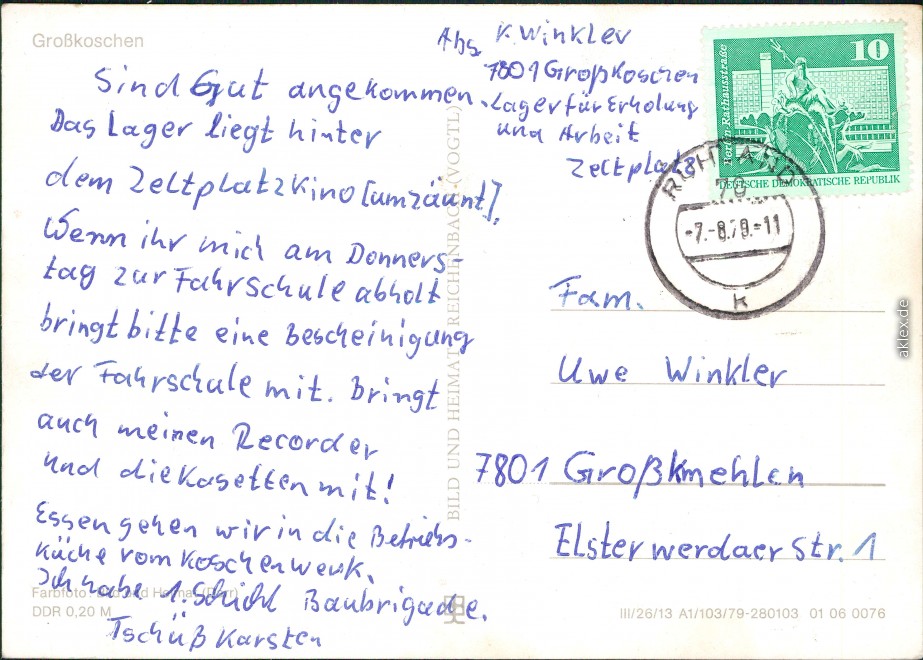 Großkoschen
Sind Gut angekommen.
Das Lager liegt hinter
dem Zeltplatzkino [umzäunt].
Wenn ihr mich am Donners-
tag zur Fahrschule abholt
bringt bitte eine Bescheinigung
der Fahrschule mit. Bringt
auch meinen Recorder
und die Kasetten mit!
Essen gehen wir in die Betriebs-
küche vom Koschenwerk.
Ich habe 1. Schicht Baubrigade.
Tschüß Karsten
Farbfoto: Bild und Heimat
DDR 0,20 M
BILD UND HEIMAT REICHENBACH (VOGTL)
Abs. K. Winkler
7801 Großkoschen
Lager für Erholung
und Arbeit
Zeltplatz
10
Berlin-Rathausstraße
DEUTSCHE DEMOKRATISCHE REPUBLIK
RUHLAND
79
-7.-8.79.-11
k
Fam.
Uwe Winkler
7801 Großkmehlen
Elsterwerdaer Str. 1
III/26/13 A1/103/79-280103 01 06 0076
aklex.de